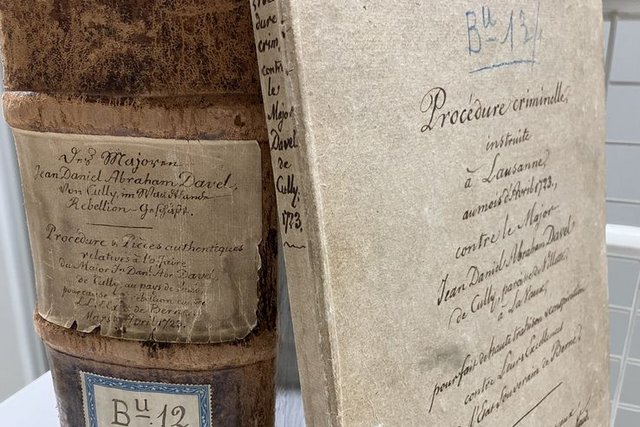 Des Majoren
Jean Daniel Abraham Davel,
von Cully, im Waadtlande
Rebellion-Geschäft.
Procédure & Pièces authentiques
relatives à l'affaire
du Major Jn Danl Abr Davel
de Cully, au pays de Vaud
pour cause de rébellion contre
LL. EE. de Berne.
Mars & Avril 1723.
Bu. 12
Procédure
crim.
contre
le
Major
Davel
de
Cully.
1723.
Bu 13
Procédure criminelle,
instruite
à Lausanne,
au mois d'Avril 1723,
contre le Major
Jean Daniel Abraham Davel,
de Cully, paroisse de Villette,
à La Vaux,
pour fait de haute trahison & conspiration
contre Leurs Excellences
l'Etat Souverain de Berne.